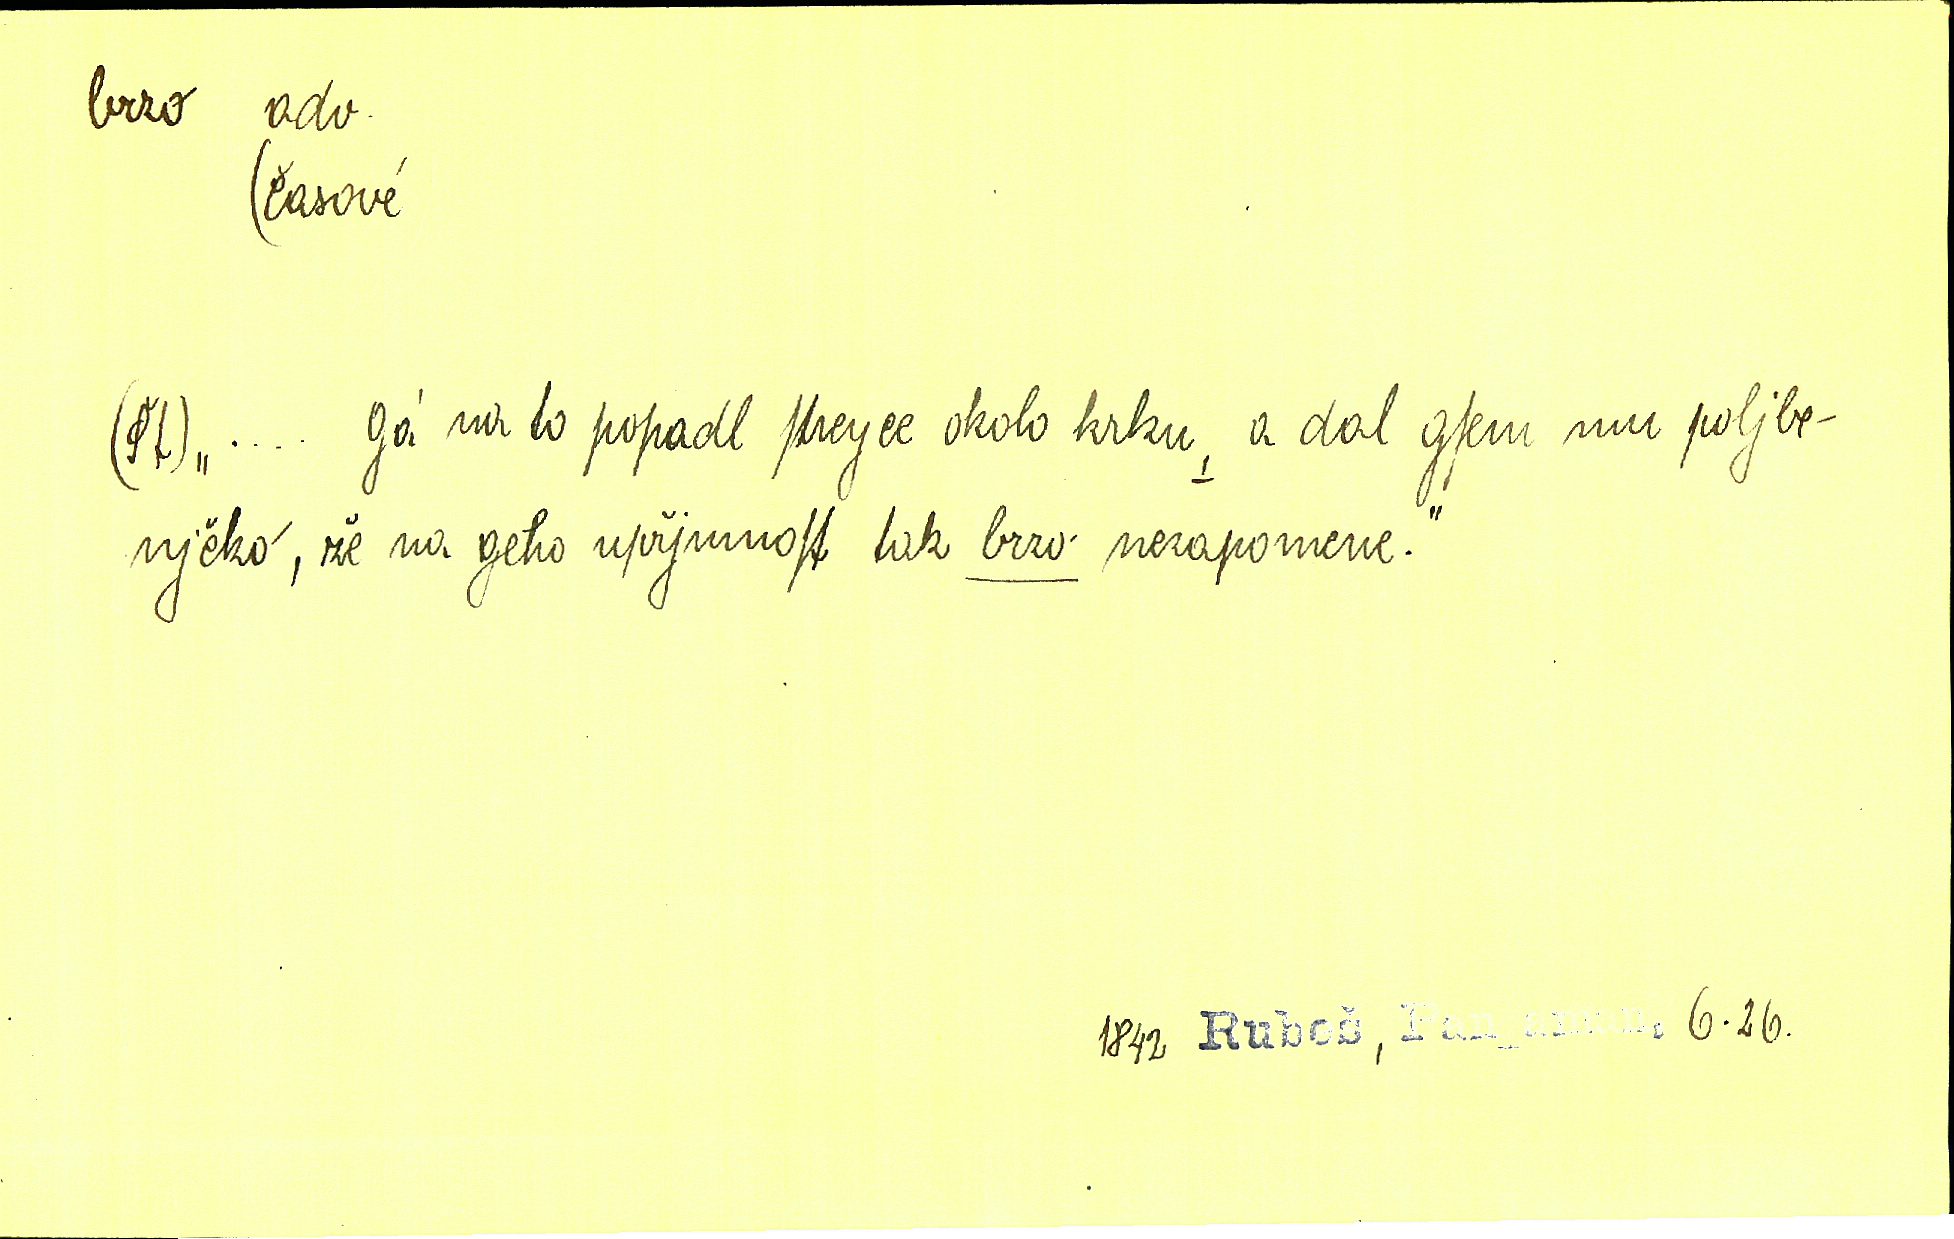 brzo adv.
(časové
(Št) „.... Gá na to popadl ſtreyce okolo krku, a dal gſem mu poljbe-
njčko, že na geho upřjmnoſt tak brzo nezapomene."
1842 Rubeš, Pan aman. 6. 26.